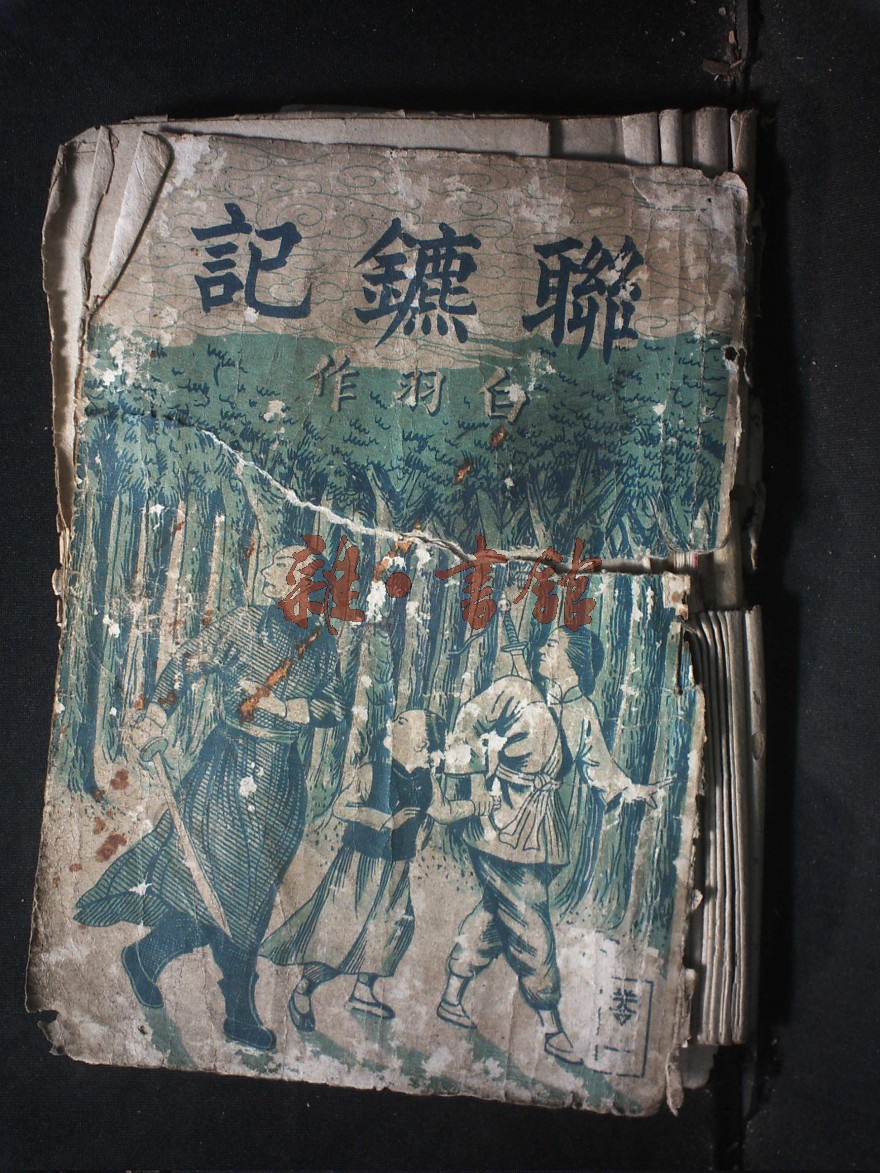 聯鑣記
白羽作
雜·書館
卷一